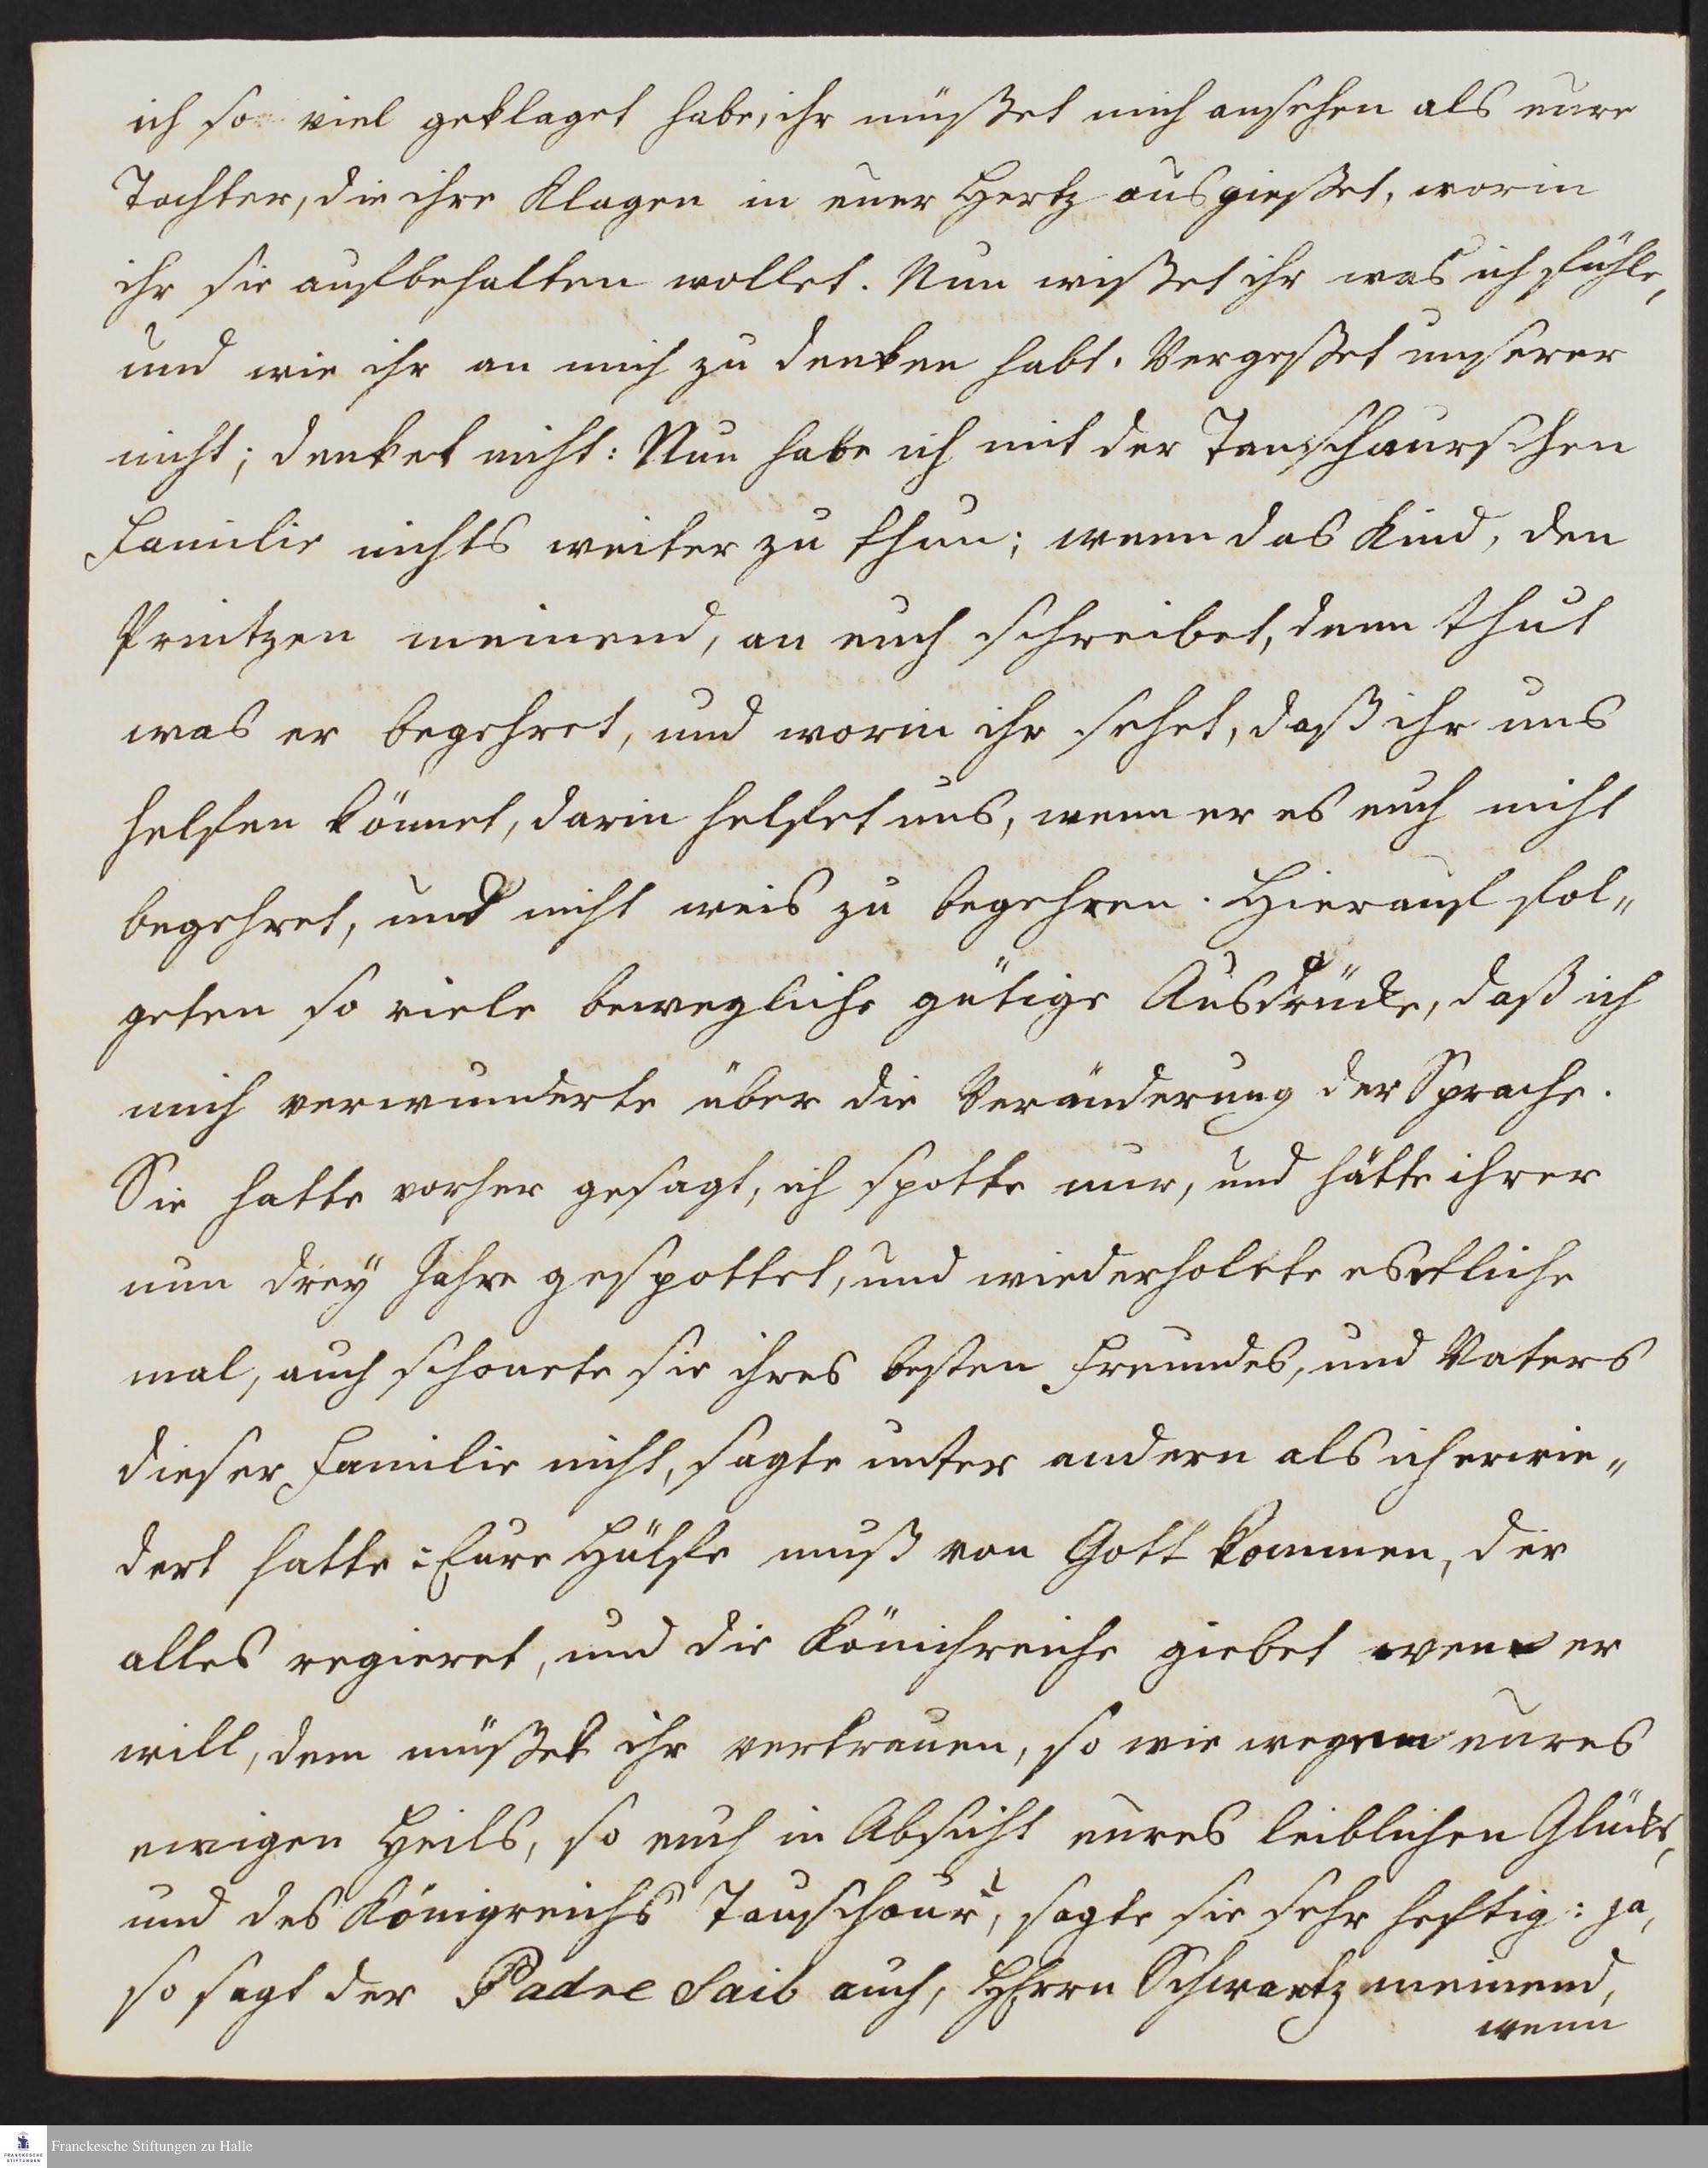 ich so viel geklaget habe, ihr müßet mich ansehen als eure
Tochter, die ihre Klagen in euer Hertz ausgießet, worin
ihr sie aufbehalten wollet. Nun wißet ihr was ich fühle,
und wie ihr an mich zu denken habt. Vergeßet unserer
nicht; denket nicht: Nun habe ich mit der Tanschaurschen
Familie nichts weiter zu thun; wenn das Kind, den
Printzen meinend, an euch schreibet, denn thut
was er begehret, und worin ihr sehet, daß ihr uns
helfen könnet, darin helfet uns, wenn er es euch nicht
begehret, und nicht weis zu begehren. Hierauf fol„
geten so viele bewegliche gütige Ausdrücke, daß ich
mich verwunderte über die Veränderung der Sprache.
Sie hatte vorher gesagt, ich spotte nur, und hätte ihrer
nun drey Jahre gespottet, und wiederholete es etliche
mal, auch schonete sie ihres besten Freundes, und Vaters
dieser Familie nicht, sagte unter andern als ich erwie„
dert hatte: Eure Hülfe muß von Gott kommen, der
alles regieret, und die Könichreiche giebet wenn er
will, dem müßet ihr vertrauen, so wie wegen eures
ewigen Heils, so auch in Absicht eures leiblichen Glücks,
und des Königreichs Tanschaur, sagte sie sehr heftig: ja,
so sagt der Padre Saib auch, HErrn Schwartz meinend,
wenn
Franckesche Stiftungen zu Halle
FRANCKESCHE
STIFTUNGEN